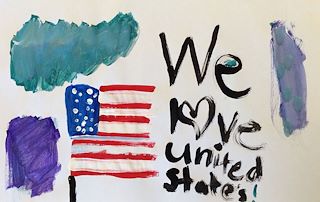 We
l♥ve
united
states!